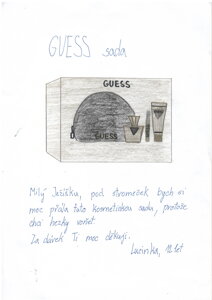 GUESS sada
GUESS
GUESS
Milý Ježíšku, pod stromeček bych si
moc přála tuto kosmetickou sadu, protože
chci hezky vonět.
Za dárek Ti moc děkuji.
Lucinka, 12 let